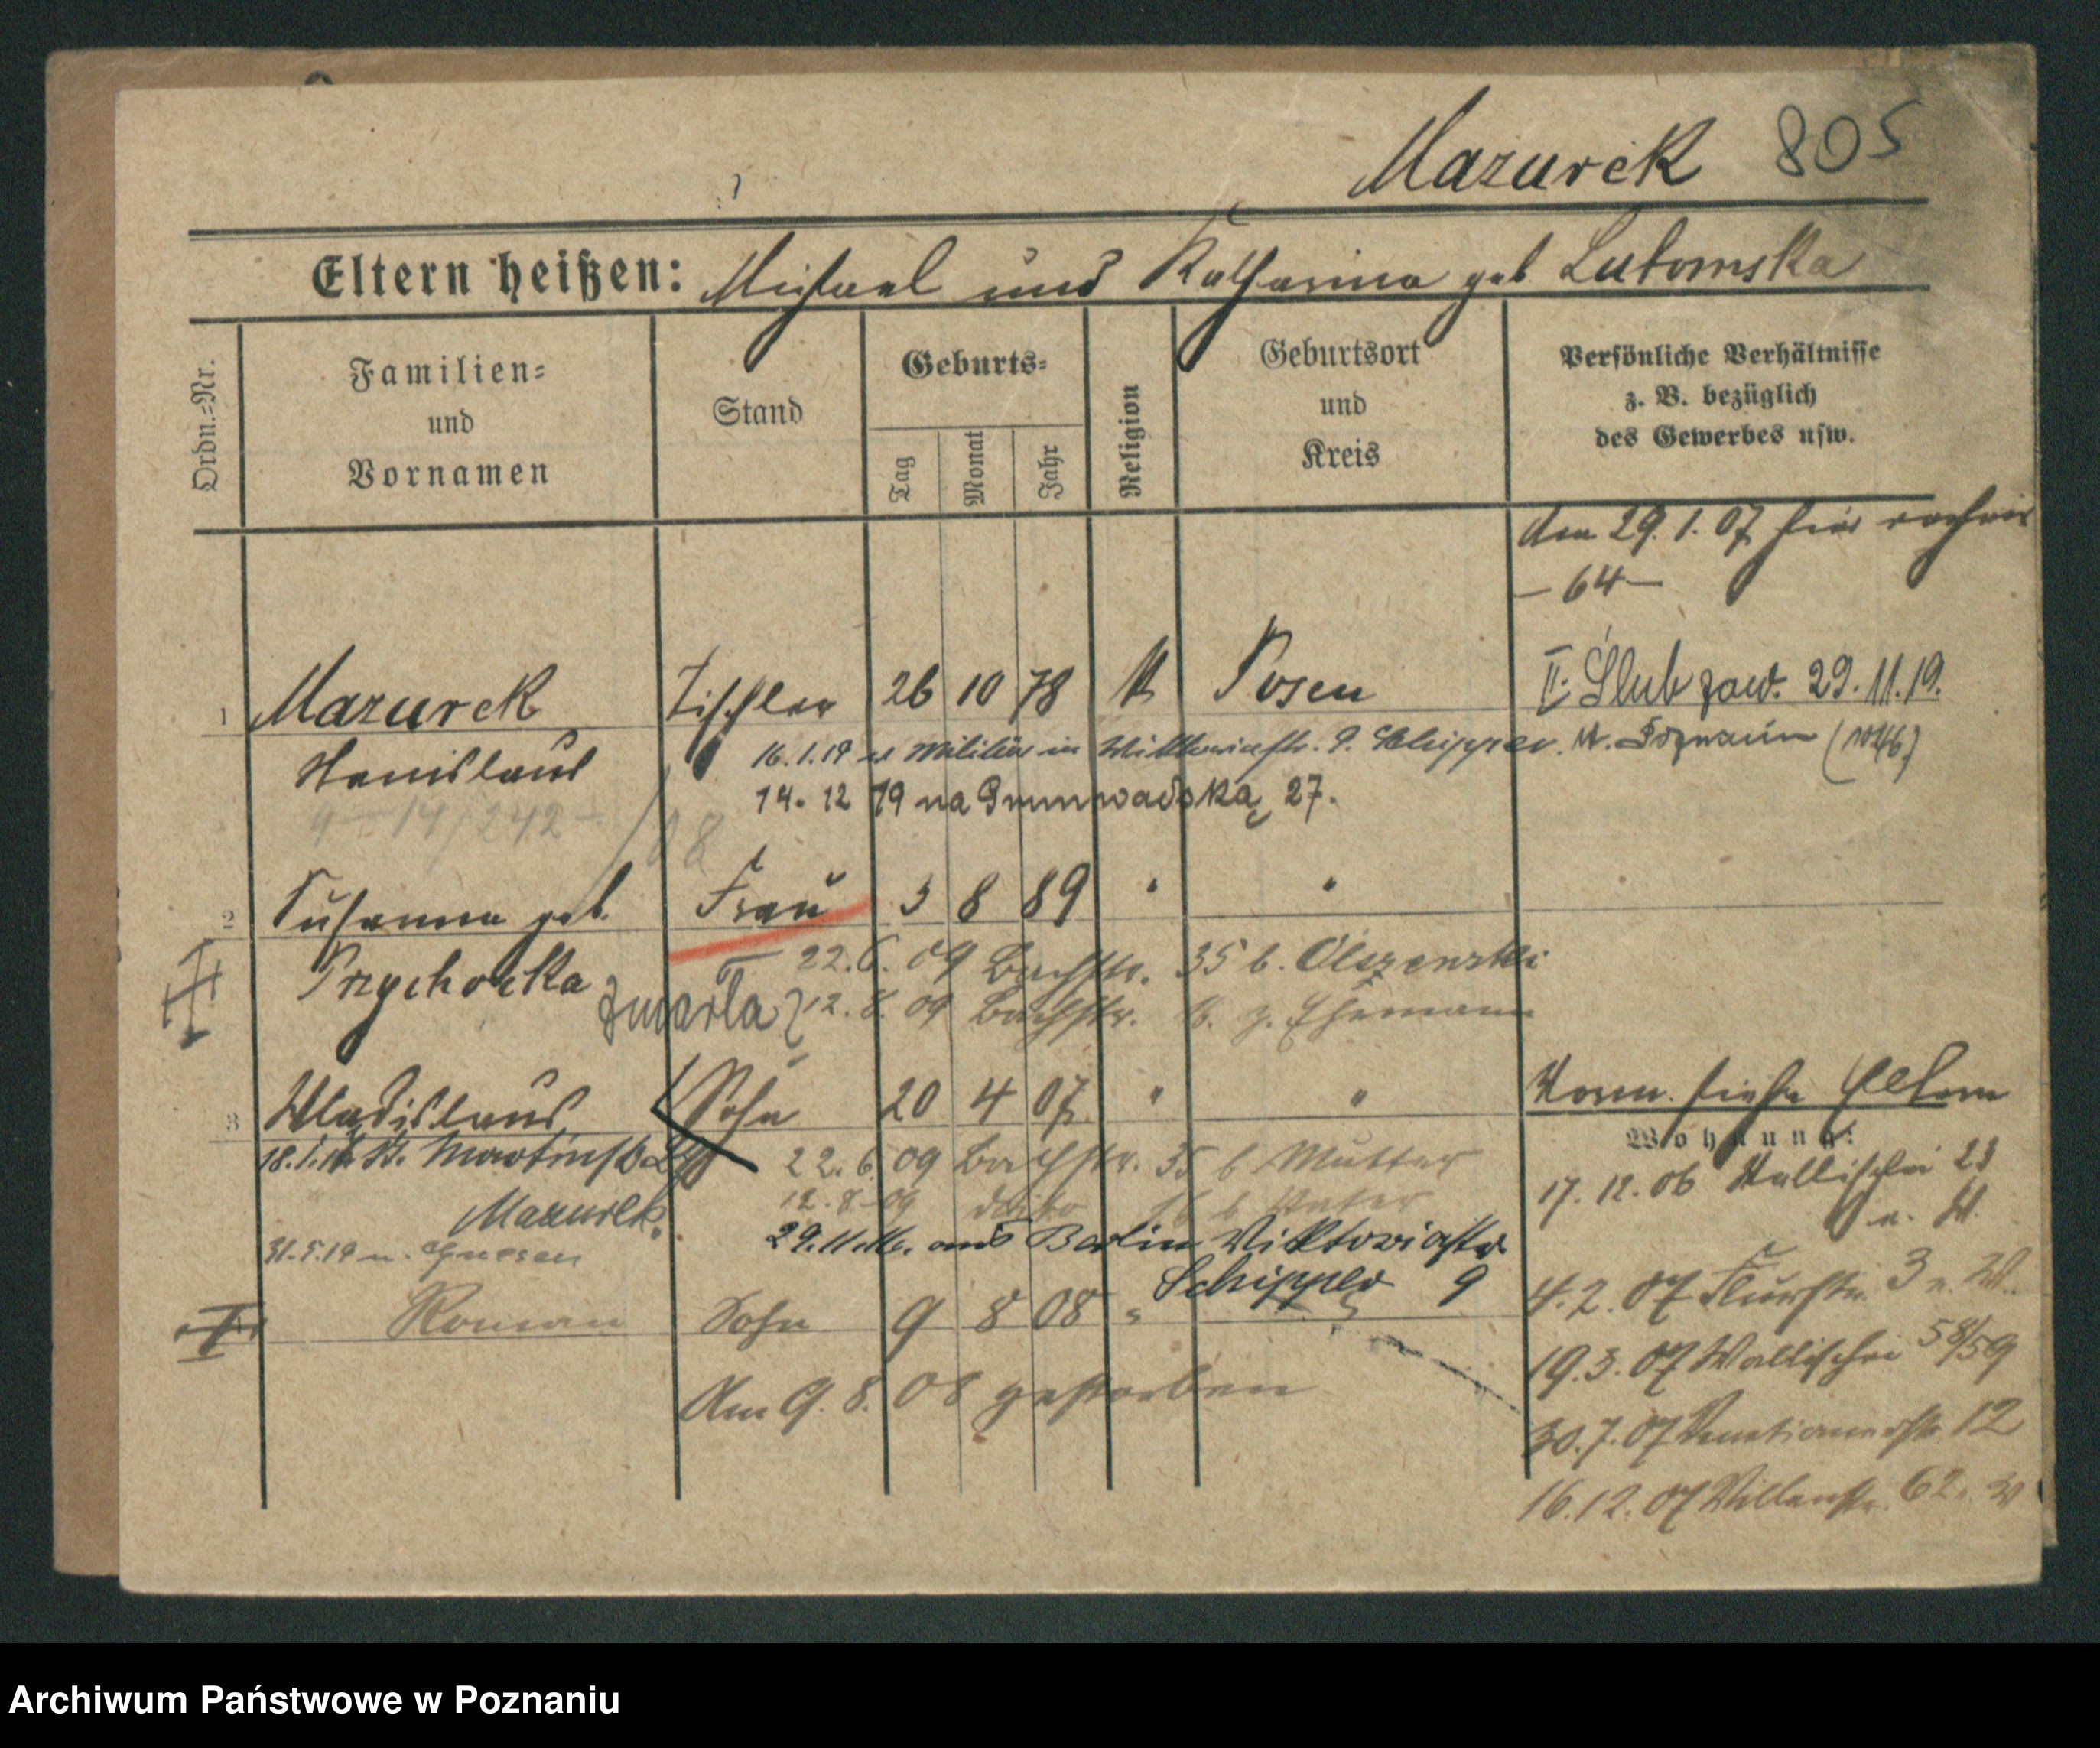 Mazurek 805
Eltern heißen: Michael und Katharina geb Lubomska
Ordn.=Nr.
Familien=
und
Vornamen
Stand
Geburts=
Tag
Monat
Jahr
Religion
Geburtsort
und
Kreis
Persönliche Verhältnisse
z. B. bezüglich
des Gewerbes usw.
Am 29. 1. 07 hier
— 64 —
1 Mazurek Tischler 26 10 78 K Posen II. Ślub zaw. 29. 11. 19.
Stanislaus 16. 1. 19 Militär in Viktoriastr. 9. Schipper. w. Poznaniu
14. 12 19 na Grunwadską 27.
4 — 14/242 — /08
2 Susanna geb. Frau 3 8 89 " "
Przychocka 22. 6. 09 Bachstr. 35 b. Olszenski
zmarła 12. 8. 09 Bachstr. z. Ehemann
3 Wladislaus Sohn 20 4 07 " " Vorm. siehe Eltern
Wohnung:
18. 1. St. Martinstr. 22. 6. 09 Bachstr. 35 b Mutter 17. 12. 06 Wallischei 23
Mazurek. 12. 8. 09 dito 16 b Vater
29. 11. aus Berlin Viktoriastr
31. 5. 19 n. Gnesen Schipper 9 4. 2. 07 Flurstr. 3 n. W.
Roman Sohn 9 8 08 " 19. 3. 07 Wallischei 58/59
Am 9. 8. 08 gestorben 30. 7. 07 Venetianerstr. 12
16. 12. 07 Villenstr. 62.
Archiwum Państwowe w Poznaniu